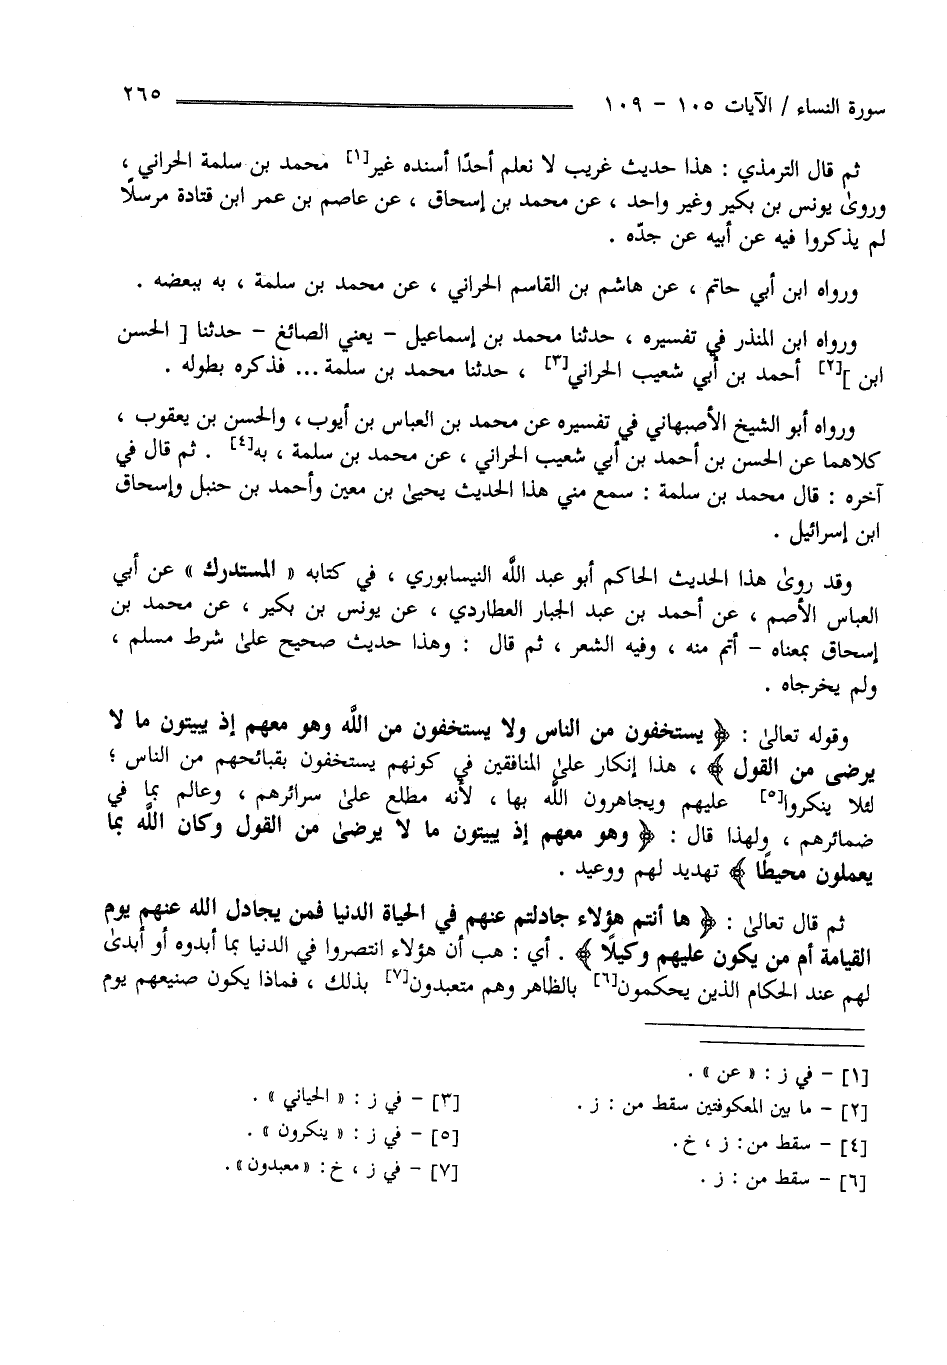 سورة النساء / الآيات ١٠٥ - ١٠٩
٢٦٥
ثم قال الترمذي : هذا حديث غريب لا نعلم أحدًا أسنده غير[١] محمد بن سلمة الحراني ،
وروىٰ يونس بن بكير وغير واحد ، عن محمد بن إسحاق ، عن عاصم بن عمر ابن قتادة مرسلًا
لم يذكروا فيه عن أبيه عن جدّه .
ورواه ابن أبي حاتم ، عن هاشم بن القاسم الحراني ، عن محمد بن سلمة ، به ببعضه .
ورواه ابن المنذر في تفسيره ، حدثنا محمد بن إسماعيل - يعني الصائغ - حدثنا [ الحسن
ابن ][٢] أحمد بن أبي شعيب الحراني[٣] ، حدثنا محمد بن سلمة... فذكره بطوله .
ورواه أبو الشيخ الأصبهاني في تفسيره عن محمد بن العباس بن أيوب ، والحسن بن يعقوب ،
كلاهما عن الحسن بن أحمد بن أبي شعيب الحراني ، عن محمد بن سلمة ، به[٤] . ثم قال في
آخره : قال محمد بن سلمة : سمع مني هذا الحديث يحيىٰ بن معين وأحمد بن حنبل وإسحاق
ابن إسرائيل .
وقد روىٰ هذا الحديث الحاكم أبو عبد اللَّه النيسابوري ، في كتابه « المستدرك » عن أبي
العباس الأصم ، عن أحمد بن عبد الجبار العطاردي ، عن يونس بن بكير ، عن محمد بن
إسحاق بمعناه - أتم منه ، وفيه الشعر ، ثم قال : وهذا حديث صحيح علىٰ شرط مسلم ،
ولم يخرجاه .
وقوله تعالىٰ : ﴿ يستخفون من الناس ولا يستخفون من اللَّه وهو معهم إذ يبيتون ما لا
يرضى من القول ﴾ ، هذا إنكار علىٰ المنافقين في كونهم يستخفون بقبائحهم من الناس ؛
لئلا ينكروا[٥] عليهم ويجاهرون اللَّه بها ، لأنه مطلع علىٰ سرائرهم ، وعالم بما في
ضمائرهم ، ولهذا قال : ﴿ وهو معهم إذ يبيتون ما لا يرضىٰ من القول وكان اللَّه بما
يعملون محيطًا ﴾ تهديد لهم ووعيد .
ثم قال تعالىٰ : ﴿ ها أنتم هؤلاء جادلتم عنهم في الحياة الدنيا فمن يجادل الله عنهم يوم
القيامة أم من يكون عليهم وكيلًا ﴾ . أي : هب أن هؤلاء انتصروا في الدنيا بما أبدوه أو أبدىٰ
لهم عند الحكام الذين يحكمون[٦] بالظاهر وهم متعبدون[٧] بذلك ، فماذا يكون صنيعهم يوم
[١] - في ز : « عن » .
[٢] - ما بين المعكوفتين سقط من : ز .
[٣] - في ز : « الحياني » .
[٤] - سقط من: ز ، خ.
[٥] - في ز : « ينكرون » .
[٦] - سقط من : ز .
[٧] - في ز ، خ: «معبدون» .